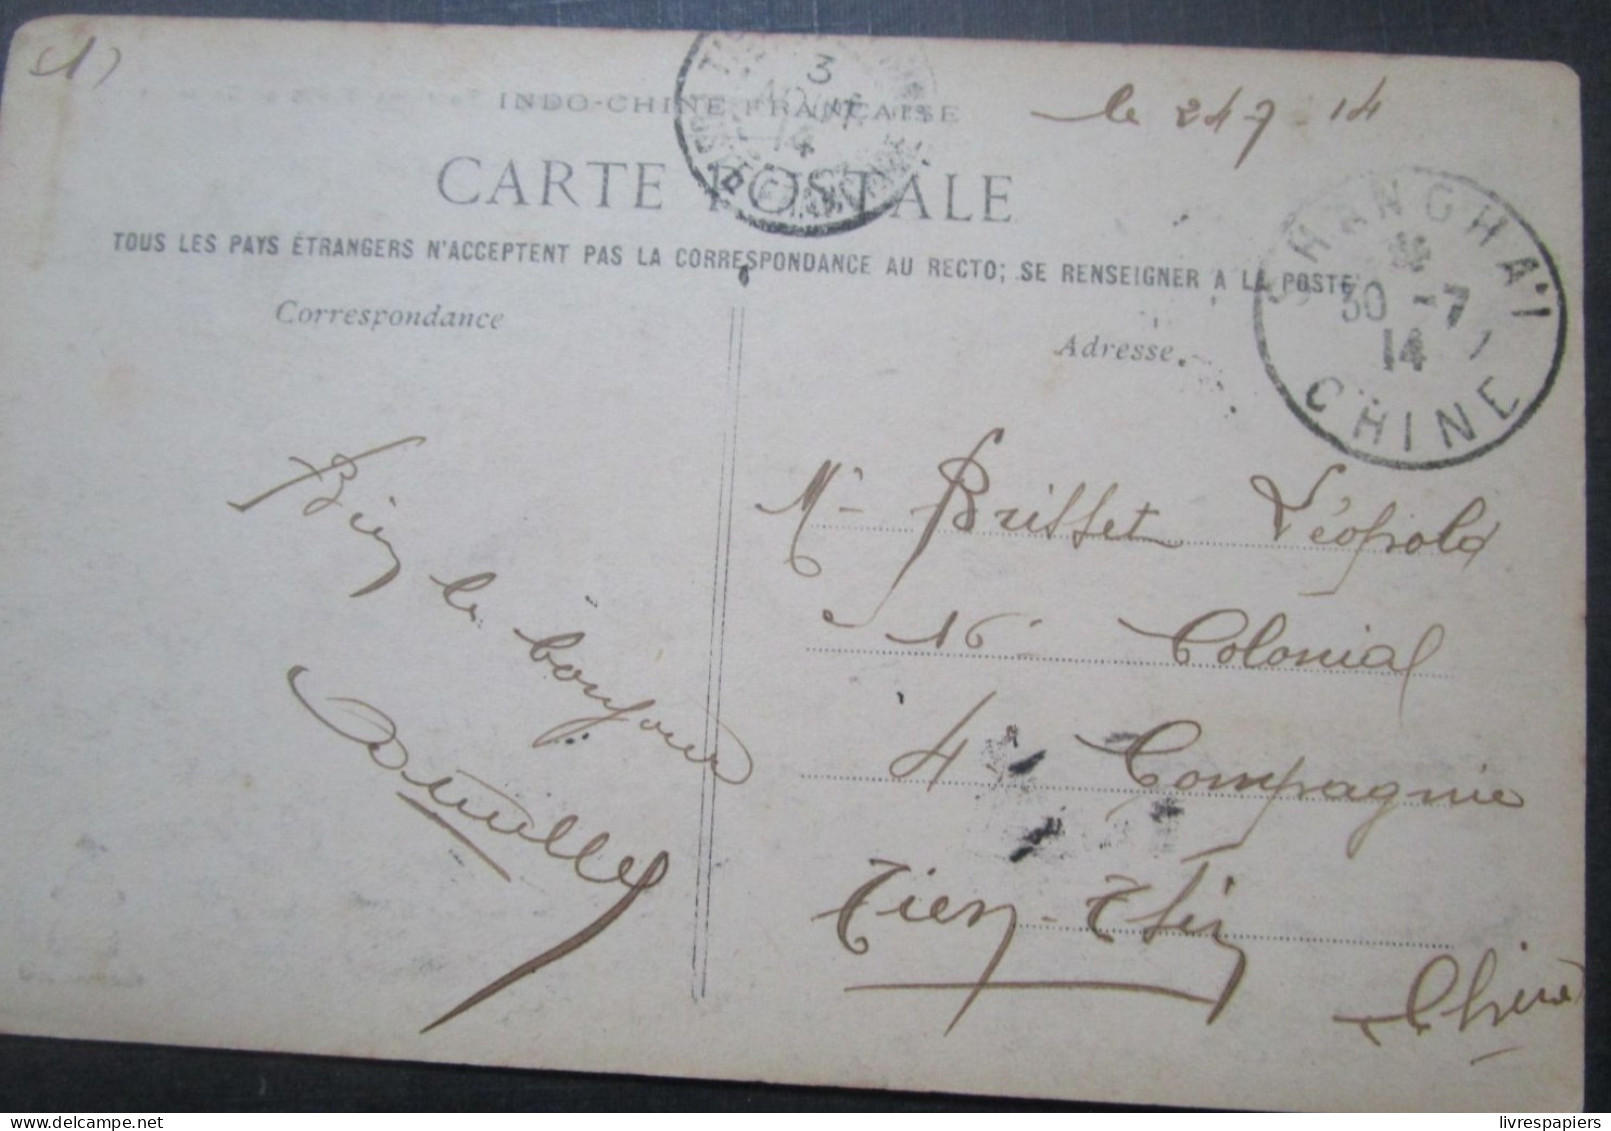 (1)
3
14
INDO-CHINE FRANÇAISE
le 24-7-14
CARTE POSTALE
TOUS LES PAYS ÉTRANGERS N'ACCEPTENT PAS LA CORRESPONDANCE AU RECTO; SE RENSEIGNER A LA POSTE
SHANG-HAÏ
30 -7
14
CHINE
Correspondance
Adresse
Bien le bonjour
Mr Brisset Léopold
16e Colonial
4e Compagnie
Tien-Tsin
Chine
livrespapiers - delcampe.net